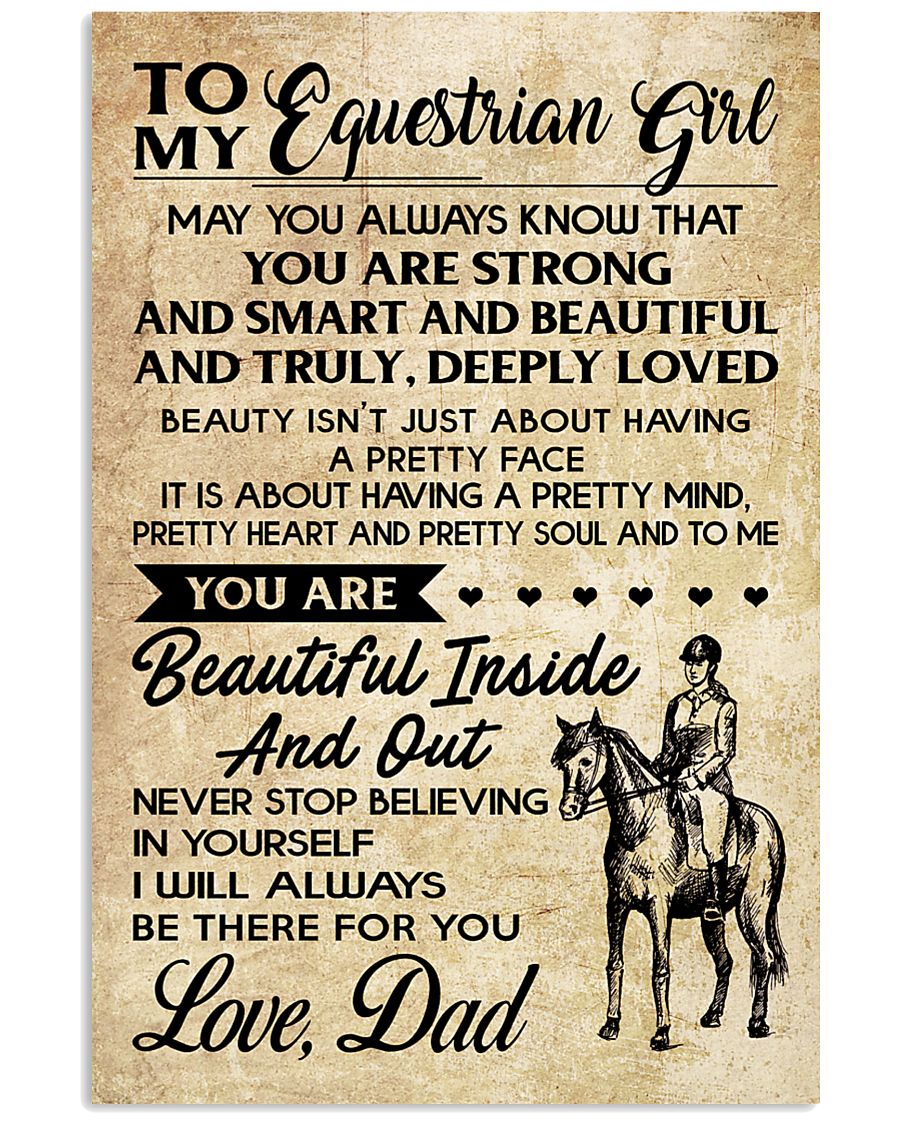 TO MY Equestrian Girl
MAY YOU ALWAYS KNOW THAT
YOU ARE STRONG
AND SMART AND BEAUTIFUL
AND TRULY, DEEPLY LOVED
BEAUTY ISN'T JUST ABOUT HAVING
A PRETTY FACE
IT IS ABOUT HAVING A PRETTY MIND,
PRETTY HEART AND PRETTY SOUL AND TO ME
YOU ARE
Beautiful Inside
And Out
NEVER STOP BELIEVING
IN YOURSELF
I WILL ALWAYS
BE THERE FOR YOU
Love, Dad